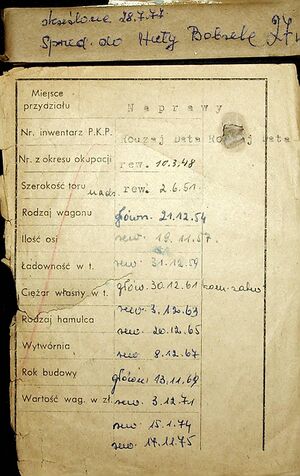 skreślono 28.7.77
Sprzed. do Huty Bobrek
Miejsce przydziału
Naprawy
Nr. inwentarz P.K.P. Rodzaj Data Rodzaj Data
Nr. z okresu okupacji rew. 10.3.48
Szerokość toru nads. rew. 2.6.51.
Rodzaj wagonu główn. 21.12.54
Ilość osi rew. 19.11.57.
Ładowność w t. rew. 31.12.59
Ciężar własny w t. główn. 30.12.61
rew. 3.12.63
Rodzaj hamulca
rew. 20.12.65
Wytwórnia rew. 8.12.67
Rok budowy główn. 13.11.69
Wartość wag. w zł. rew. 3.12.71
rew. 15.1.74
rew. 17.11.75